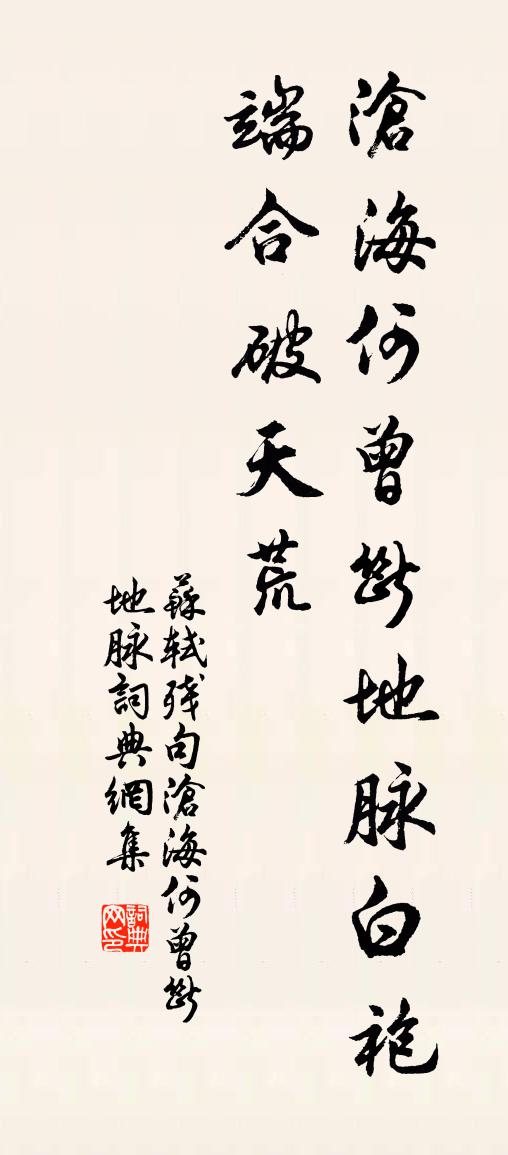 滄海何曾斷地脉白袍
端合破天荒
蘇軾殘句滄海何曾斷
地脉詞典網集
詞典网印